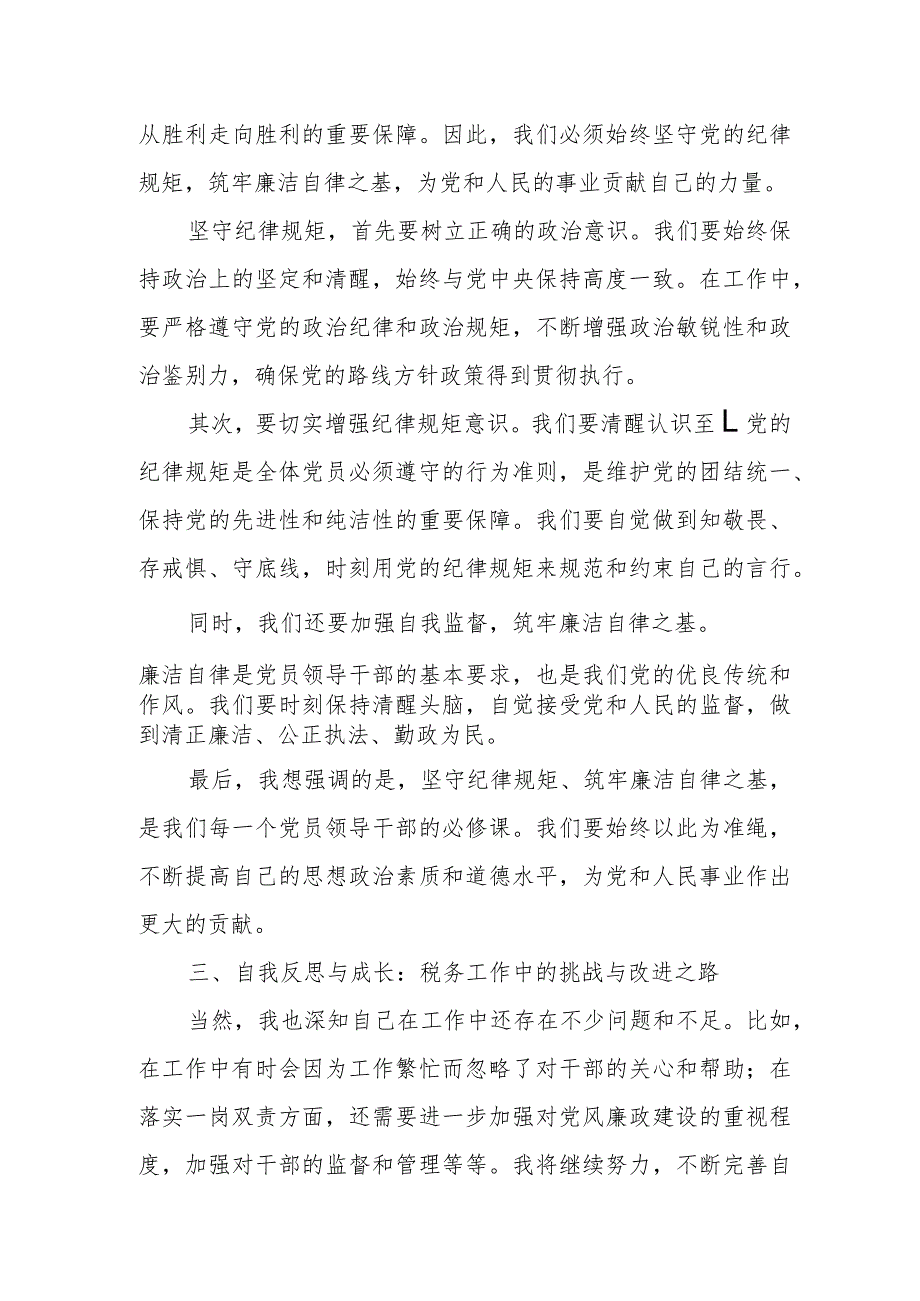 从胜利走向胜利的重要保障。因此，我们必须始终坚守党的纪律
规矩，筑牢廉洁自律之基，为党和人民的事业贡献自己的力量。
坚守纪律规矩，首先要树立正确的政治意识。我们要始终保
持政治上的坚定和清醒，始终与党中央保持高度一致。在工作中，
要严格遵守党的政治纪律和政治规矩，不断增强政治敏锐性和政
治鉴别力，确保党的路线方针政策得到贯彻执行。
其次，要切实增强纪律规矩意识。我们要清醒认识至L党的
纪律规矩是全体党员必须遵守的行为准则，是维护党的团结统一、
保持党的先进性和纯洁性的重要保障。我们要自觉做到知敬畏、
存戒惧、守底线，时刻用党的纪律规矩来规范和约束自己的言行。
同时，我们还要加强自我监督，筑牢廉洁自律之基。
廉洁自律是党员领导干部的基本要求，也是我们党的优良传统和
作风。我们要时刻保持清醒头脑，自觉接受党和人民的监督，做
到清正廉洁、公正执法、勤政为民。
最后，我想强调的是，坚守纪律规矩、筑牢廉洁自律之基，
是我们每一个党员领导干部的必修课。我们要始终以此为准绳，
不断提高自己的思想政治素质和道德水平，为党和人民事业作出
更大的贡献。
三、自我反思与成长：税务工作中的挑战与改进之路
当然，我也深知自己在工作中还存在不少问题和不足。比如，
在工作中有时会因为工作繁忙而忽略了对干部的关心和帮助；在
落实一岗双责方面，还需要进一步加强对党风廉政建设的重视程
度，加强对干部的监督和管理等等。我将继续努力，不断完善自